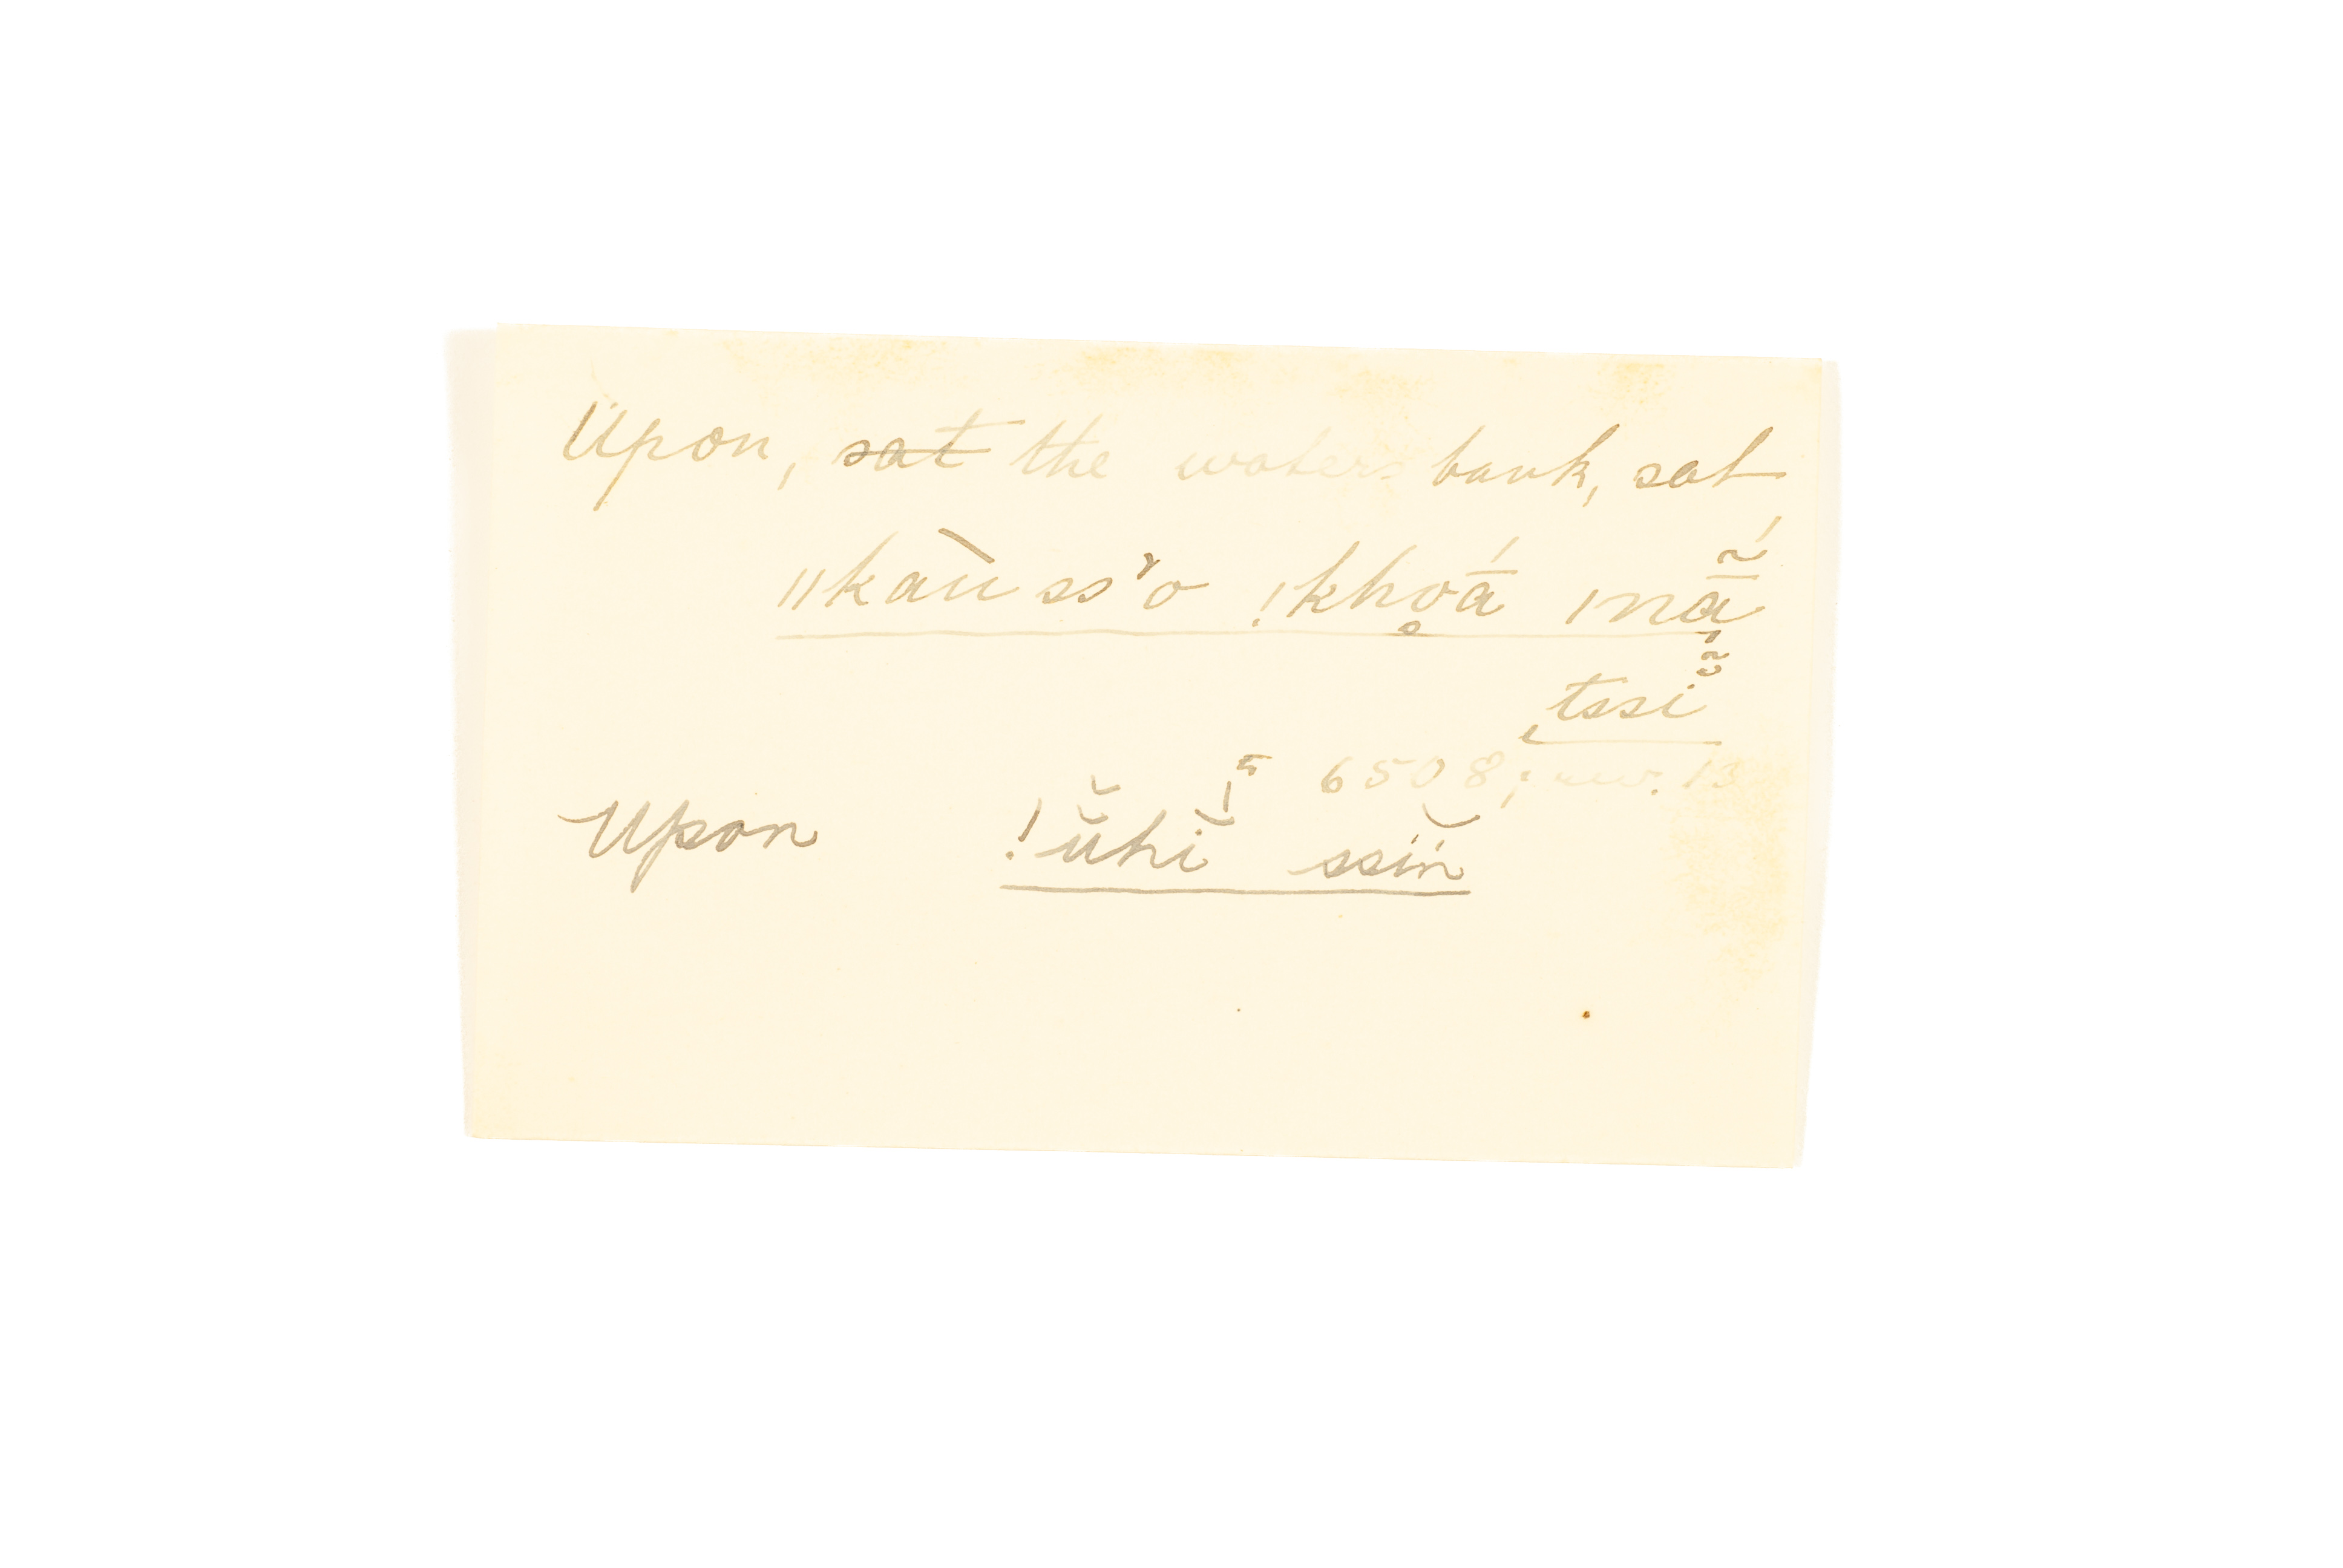 Upon, sat the water bank, sat
ǁkaù ss'o !kho̥ā́ ǀnā̃́
tssĩ̆
6508, rev. 13
Upon !ŭhĭ ssĭn